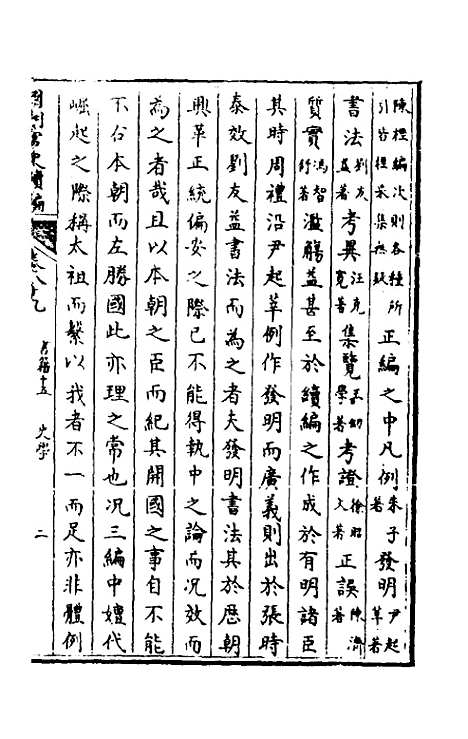 陳桱編次則各種所
引皆桱采集無疑
正編之中凡例朱子著發明尹起莘著
書法劉友益著考異汪克寬著集覽王幼學著考證徐昭文著正誤陳濟著
質實馮智舒著濫觴益甚至於續編之作成於有明諸臣
其時周禮沿尹起莘例作發明而廣義則出於張時
泰效劉友益書法而為之者夫發明書法其於歷朝
興革正統偏安之際已不能得執中之論而況效而
為之者哉且以本朝之臣而紀其開國之事自不能
不右本朝而左勝國此亦理之常也況三編中嬗代
崛起之際稱太祖而繫以我者不一而足亦非體例
皇朝當史續編 卷八九 史學 二